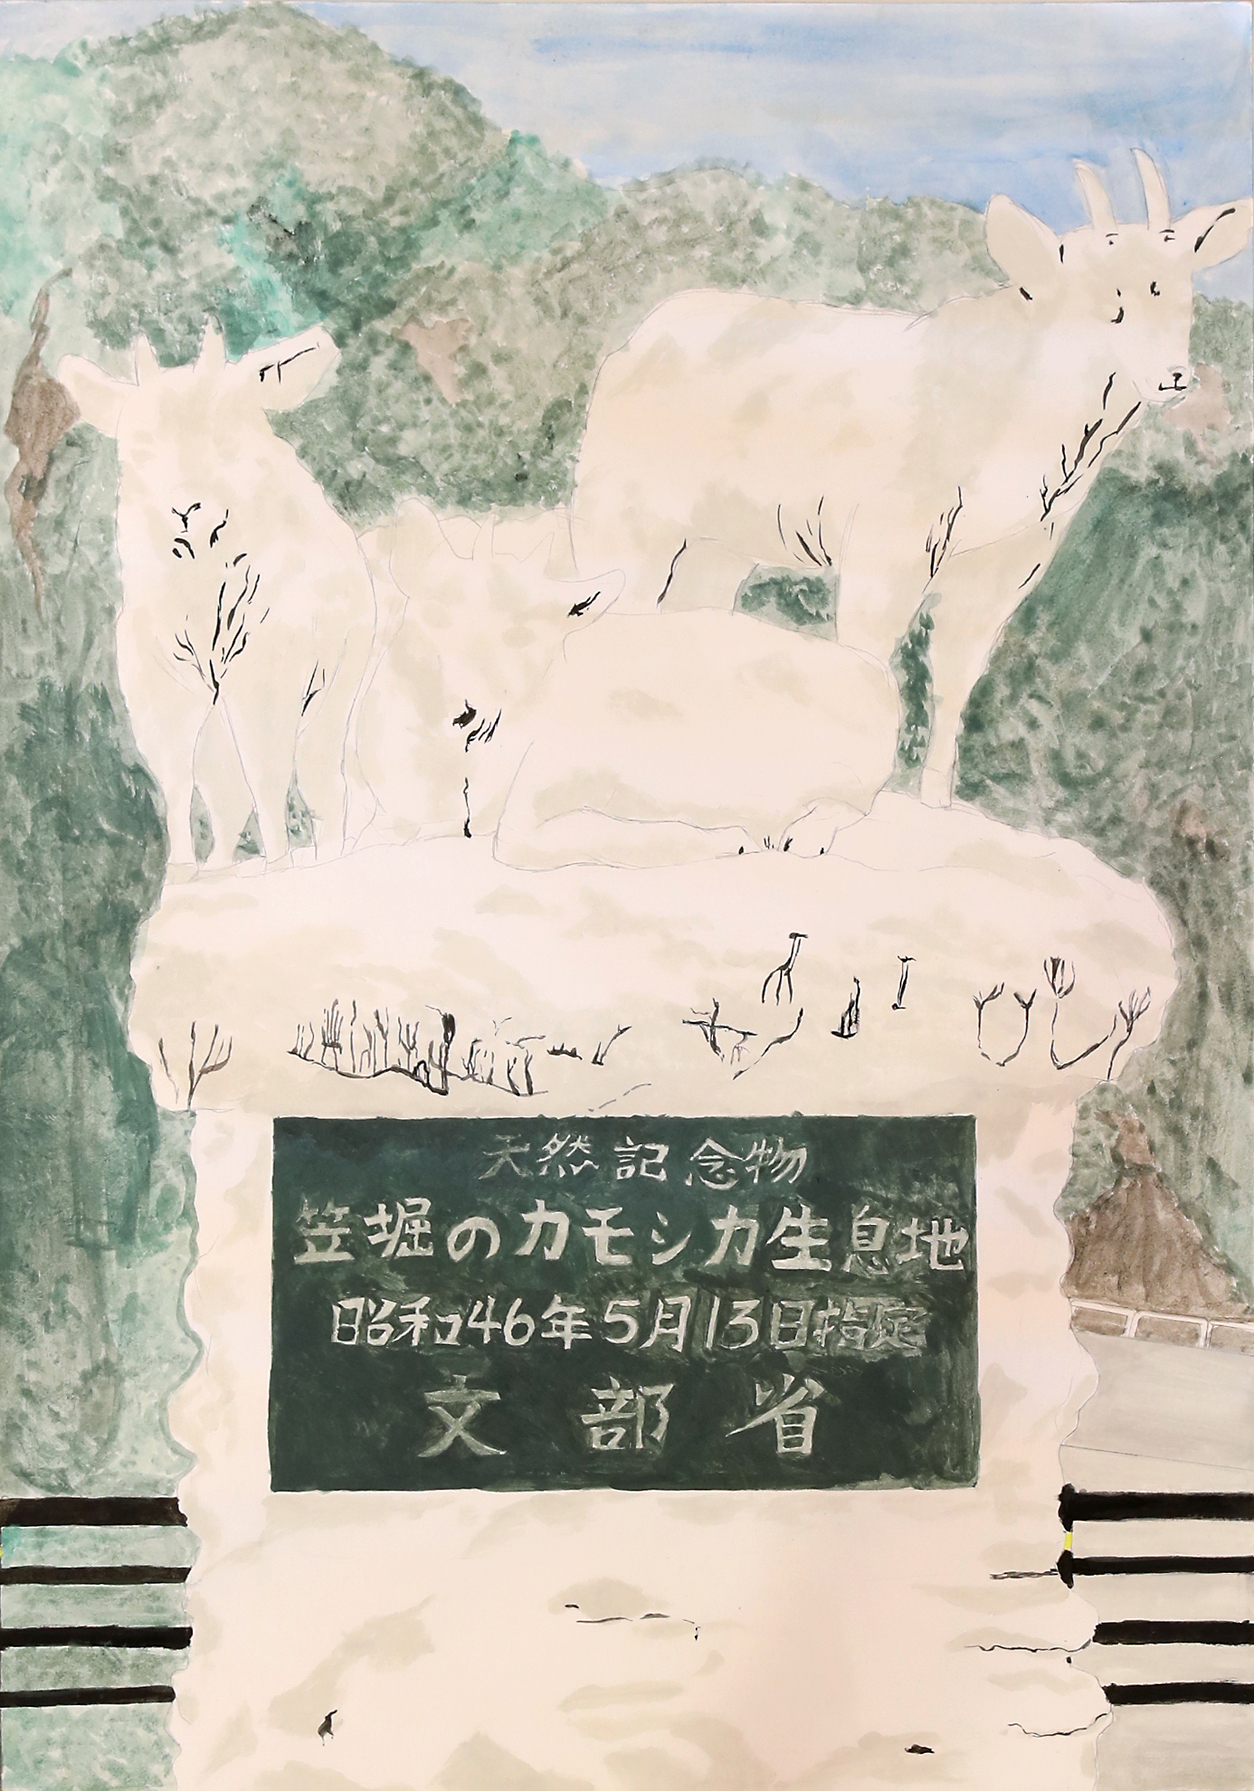 天然記念物
笠堀のカモシカ生息地
昭和46年5月13日指定
文部省